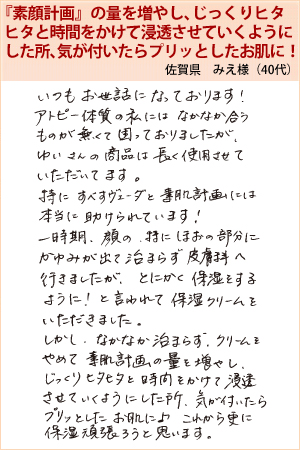 『素顔計画』の量を増やし、じっくりヒタ
ヒタと時間をかけて浸透させていくように
した所、気が付いたらプリッとしたお肌に！
佐賀県　みえ様（40代）
いつもお世話になっております！
アトピー体質の私には なかなか合う
ものが無くて困っておりましたが、
ゆいさんの商品は長く使用させて
いただいてます。
特に すべすヴェーダと素肌計画には
本当に助けられています！
一時期、顔の、特にほおの部分に
かゆみが出て治まらず皮膚科へ
行きましたが、とにかく保湿をする
ように！と言われて保湿クリームを
いただきました。
しかし、なかなか治まらず、クリームを
やめて 素肌計画の量を増やし、
じっくりヒタヒタと時間をかけて浸透
させていくようにした所、気が付いたら
プリッとしたお肌に♪ これから更に
保湿頑張ろうと思います。